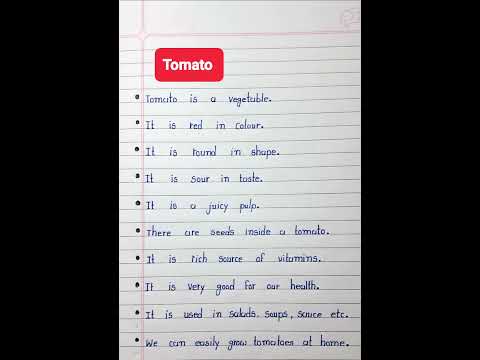 Tomato
Tomato is a vegetable.
It is red in colour.
It is round in shape.
It is sour in taste.
It is a juicy pulp.
There are seeds inside a tomato.
It is rich source of vitamins.
It is very good for our health.
It is used in salads. soups, sauce etc.
We can easily grow tomatoes at home.